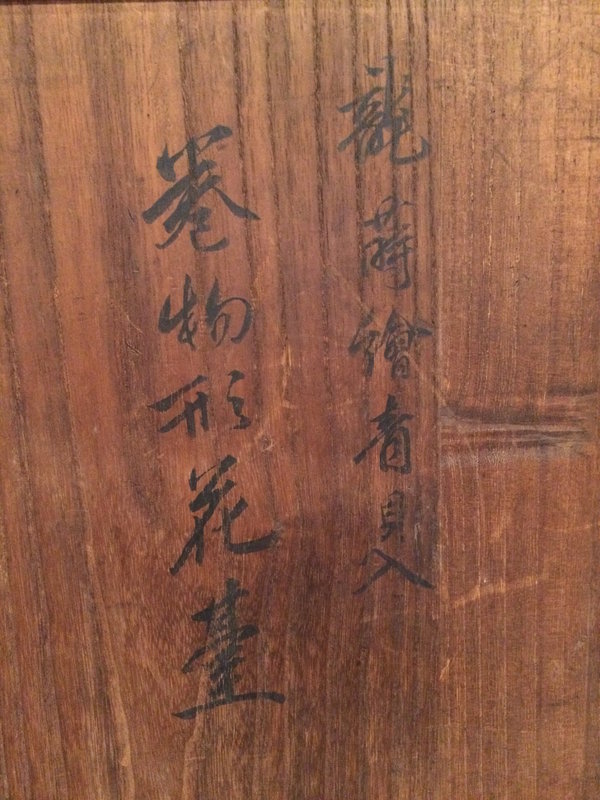 龍蒔繪青貝入
卷物形花臺